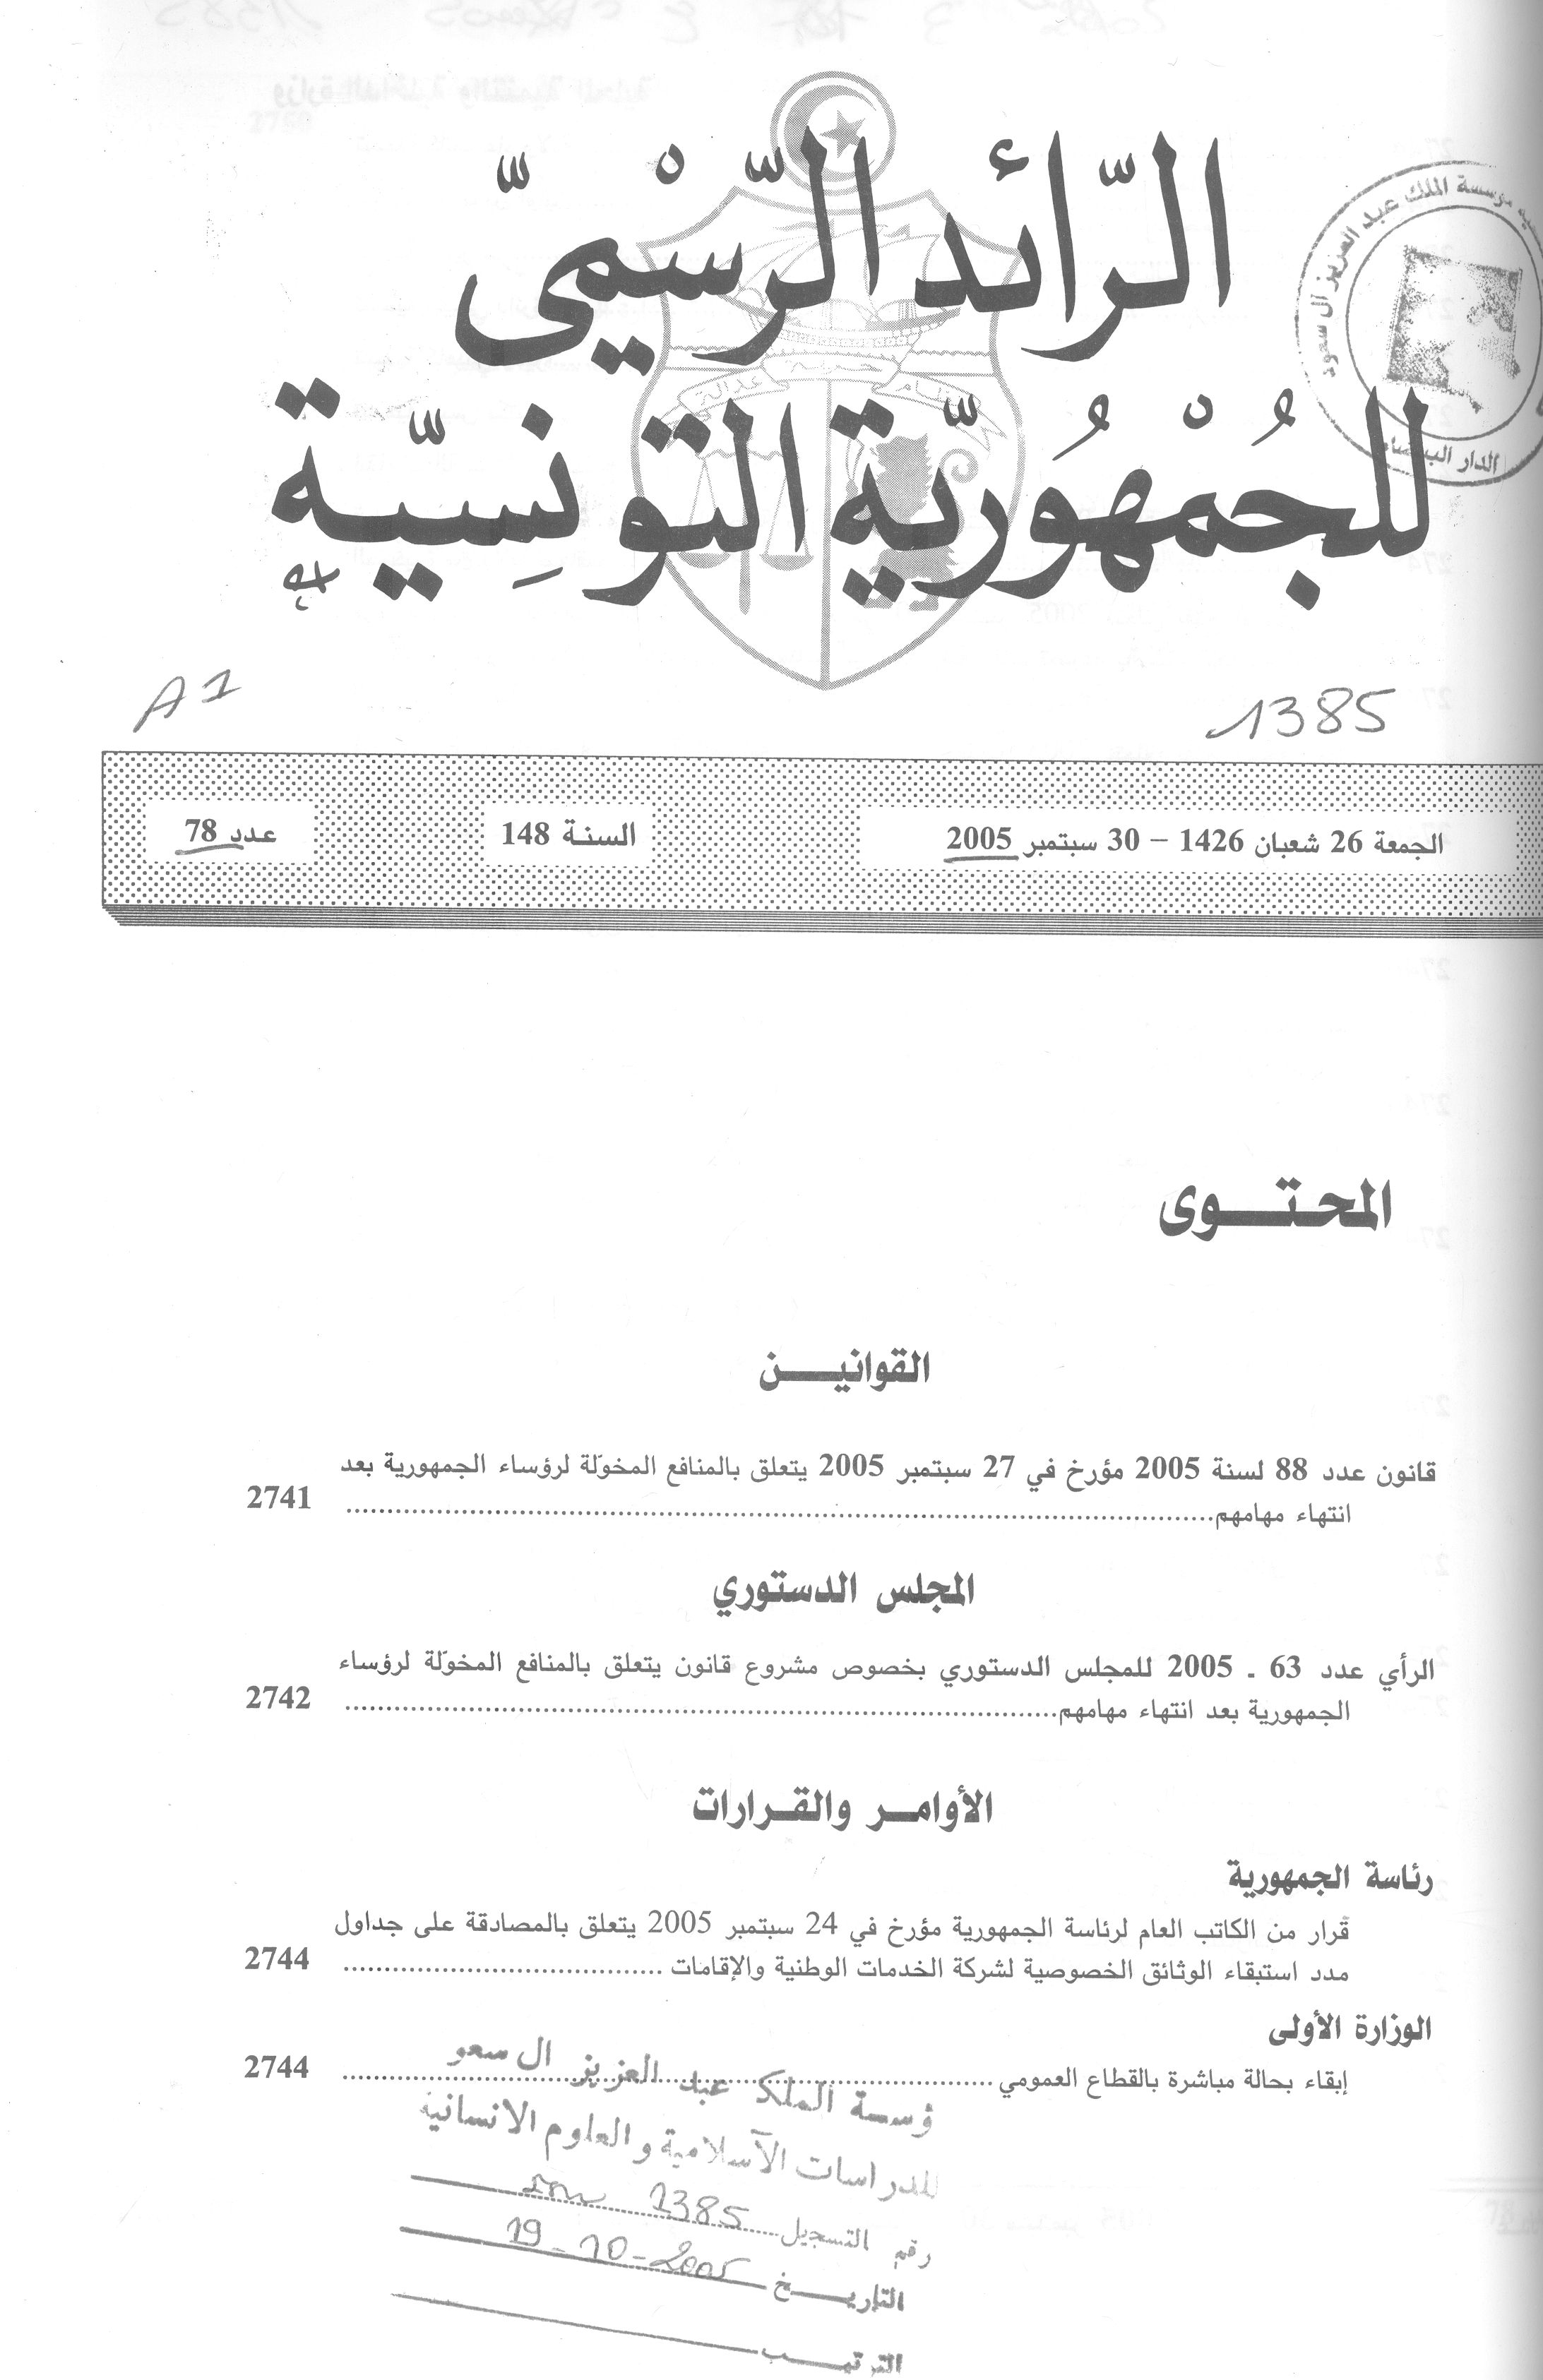 الرّائد الرّسْميّ
للجُمْهُوريّة التونِسيّة
A1
1385
الجمعة 26 شعبان 1426 – 30 سبتمبر 2005
السنة 148
عدد 78
المحتوى
القوانين
قانون عدد 88 لسنة 2005 مؤرخ في 27 سبتمبر 2005 يتعلق بالمنافع المخوّلة لرؤساء الجمهورية بعد
انتهاء مهامهم 2741
المجلس الدستوري
الرأي عدد 63 ـ 2005 للمجلس الدستوري بخصوص مشروع قانون يتعلق بالمنافع المخوّلة لرؤساء
الجمهورية بعد انتهاء مهامهم 2742
الأوامر والقرارات
رئاسة الجمهورية
قرار من الكاتب العام لرئاسة الجمهورية مؤرخ في 24 سبتمبر 2005 يتعلق بالمصادقة على جداول
مدد استبقاء الوثائق الخصوصية لشركة الخدمات الوطنية والإقامات 2744
الوزارة الأولى
إبقاء بحالة مباشرة بالقطاع العمومي 2744
ؤسسة الملك عبد العزيز ال سعو
للدراسات الآسلامية والعلوم الانسانية
رقم التسجيل 1385
التاريخ 19-10-2005
الترتيب
مؤسسة الملك عبد العزيز آل سعود
الدار البيضاء
عدالة
حرية